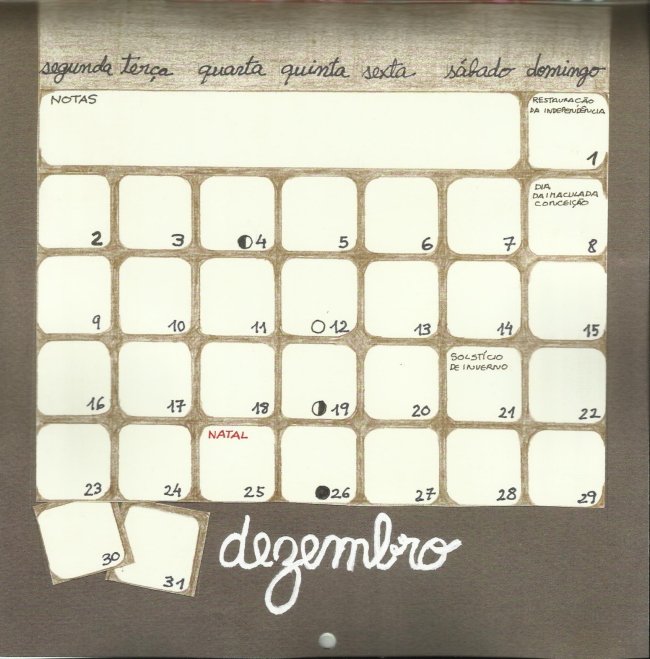 segunda terça quarta quinta sexta sábado domingo
NOTAS
RESTAURAÇÃO
DA INDEPENDÊNCIA
1
2 3 4 5 6 7
DIA
DA IMACULADA
CONCEIÇÃO
8
9 10 11 12 13 14 15
16 17 18 19 20
SOLSTÍCIO
DE INVERNO
21 22
23 24
NATAL
25 26 27 28 29
30 31
dezembro